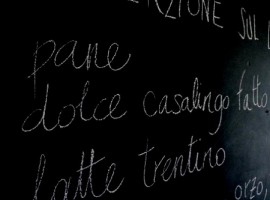 SUL
pane
dolce casalingo fatto
latte trentino
orzo,